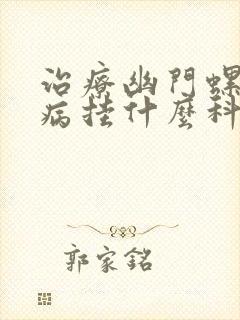 治療幽門螺
病挂什麼科
郭家銘